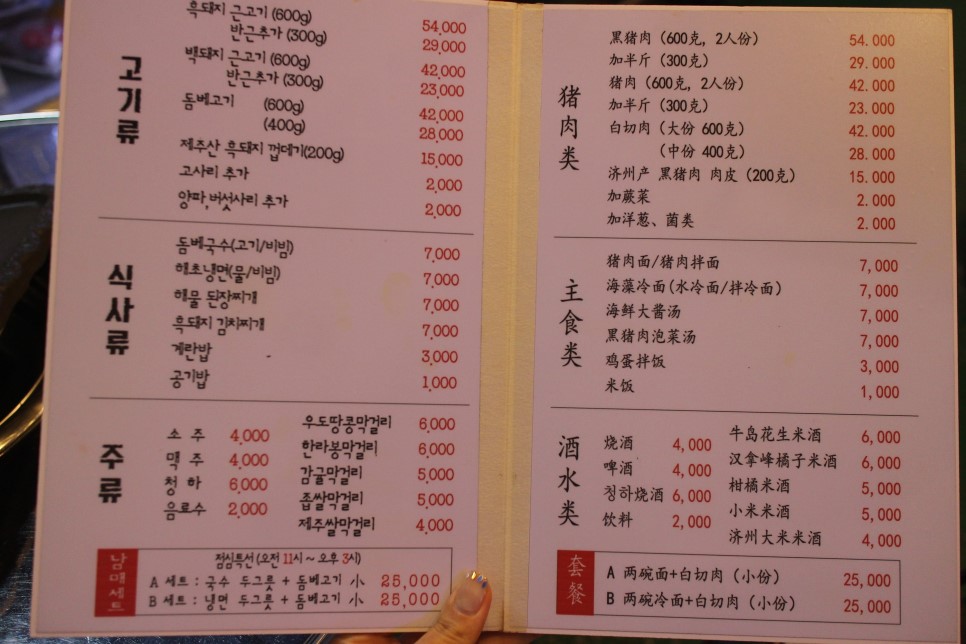 고기류
흑돼지 근고기 (600g) 54,000
반근추가 (300g) 29,000
백돼지 근고기 (600g) 42,000
반근추가 (300g) 23,000
돔베고기 (600g) 42,000
(400g) 28,000
제주산 흑돼지 껍데기(200g) 15,000
고사리 추가 2,000
양파,버섯사리 추가 2,000
식사류
돔베국수(고기/비빔) 7,000
해초냉면(물/비빔) 7,000
해물 된장찌개 7,000
흑돼지 김치찌개 7,000
계란밥 3,000
공기밥 1,000
주류
소 주 4,000
맥 주 4,000
청 하 6,000
음료수 2,000
우도땅콩막걸리 6,000
한라봉막걸리 6,000
감귤막걸리 5,000
좁쌀막걸리 5,000
제주쌀막걸리 4,000
남매세트
점심특선(오전 11시 ~ 오후 3시)
A 세트 : 국수 두그릇 + 돔베고기 小 25,000
B 세트 : 냉면 두그릇 + 돔베고기 小 25,000
猪肉类
黑猪肉 (600克, 2人份) 54.000
加半斤 (300克) 29.000
猪肉 (600克, 2人份) 42.000
加半斤 (300克) 23.000
白切肉 (大份 600克) 42.000
(中份 400克) 28.000
济州产 黑猪肉 肉皮 (200克) 15.000
加蕨菜 2.000
加洋葱、菌类 2.000
主食类
猪肉面/猪肉拌面 7,000
海藻冷面(水冷面/拌冷面) 7,000
海鲜大酱汤 7,000
黑猪肉泡菜汤 7,000
鸡蛋拌饭 3,000
米饭 1,000
酒水类
烧酒 4,000
啤酒 4,000
청하烧酒 6,000
饮料 2,000
牛岛花生米酒 6,000
汉拿峰橘子米酒 6,000
柑橘米酒 5,000
小米米酒 5,000
济州大米米酒 4,000
套餐
A 两碗面+白切肉 (小份) 25,000
B 两碗冷面+白切肉 (小份) 25,000